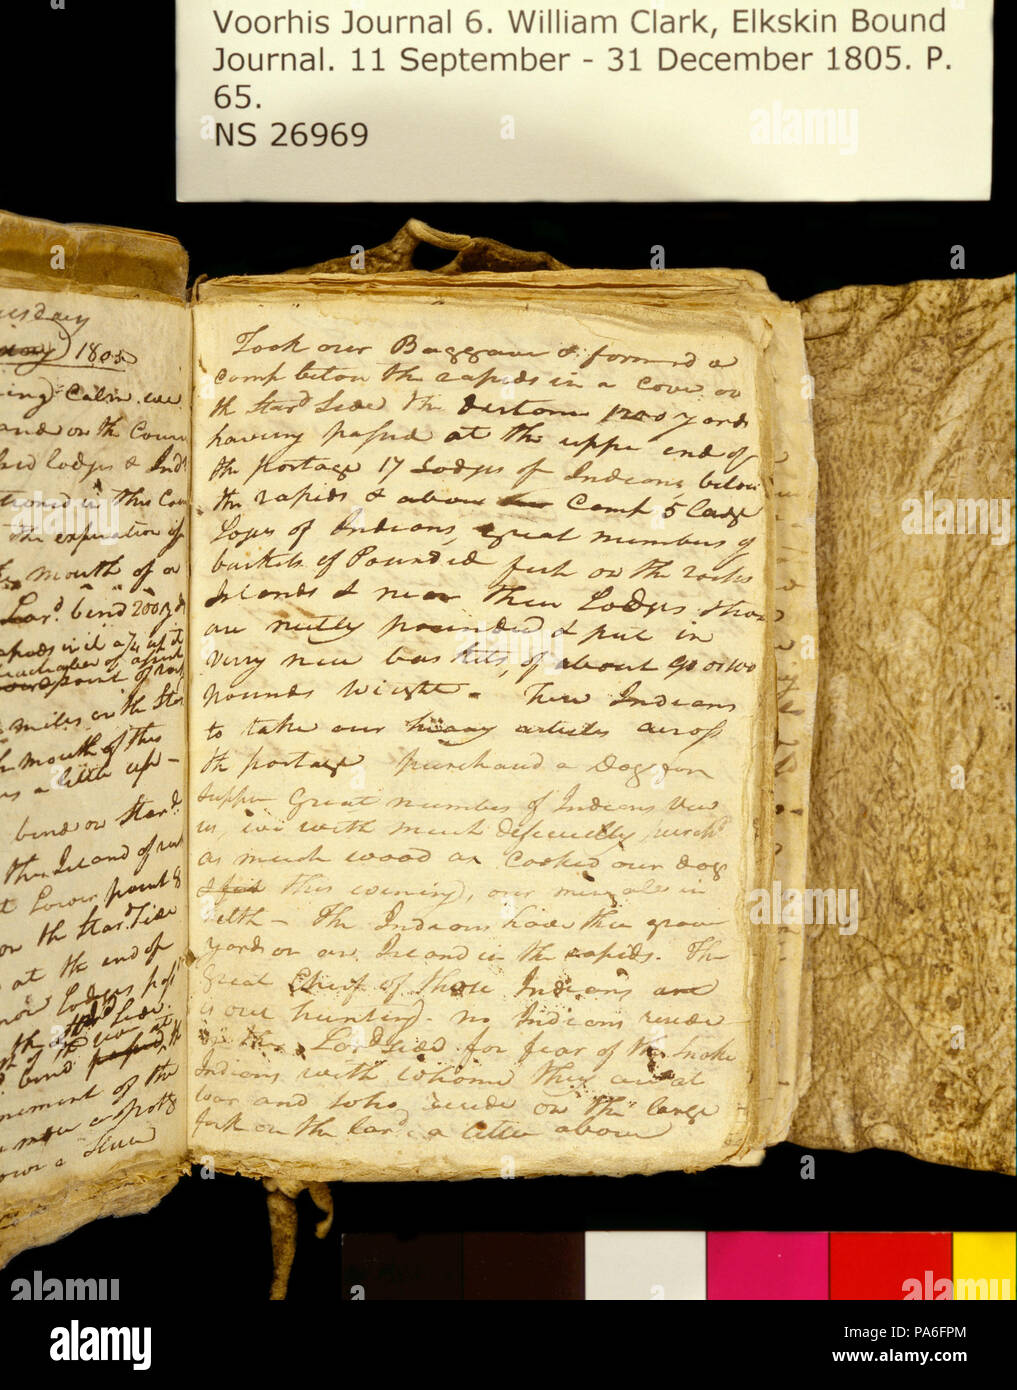 Voorhis Journal 6. William Clark, Elkskin Bound
Journal. 11 September - 31 December 1805. P.
65.
NS 26969
1805
ing Calm we
and on the Cour
lodges & Ind
in this Cou
the expiration of
mouth of a
Lard. bend 200 yds
point of rock
miles on the Star
mouth of this
a little up
bend on Stard.
this Island of rock
Lower point &
on the Stard. Side
at the end of
Lodges
the Stard Side
bend passed the
of the
Took our Baggage & formed a
camp below the rapids in a cove on
the Stard Side the distance 1200 yards
having passed at the upper end of
the portage 17 Lodges of Indians, below
the rapids & above Camp 5 large
Loges of Indians, great numbers of
baskets of Pounded fish on the rocks
Islands & near their Lodges thos
are neetly pounded & put in
verry new baskets, of about 90 or 100
pounds wight. These Indians
to take our heavy articles across
the portage purchased a Dog for
supper Great numbers of Indians view
us, we with much dificuelty purchd.
as much wood as Cooked our dog
this evening, our men all in
helth - The Indians have their grave
yards on an Island in the rapids. The
Great Chief of those Indians are
is out hunting. no Indians reside
on the Lard Side for fear of the Snake
Indians with whome they are at
war and who reside on the large
fork on the lard. a little above
alamy
Image ID: PA6FPM
www.alamy.com